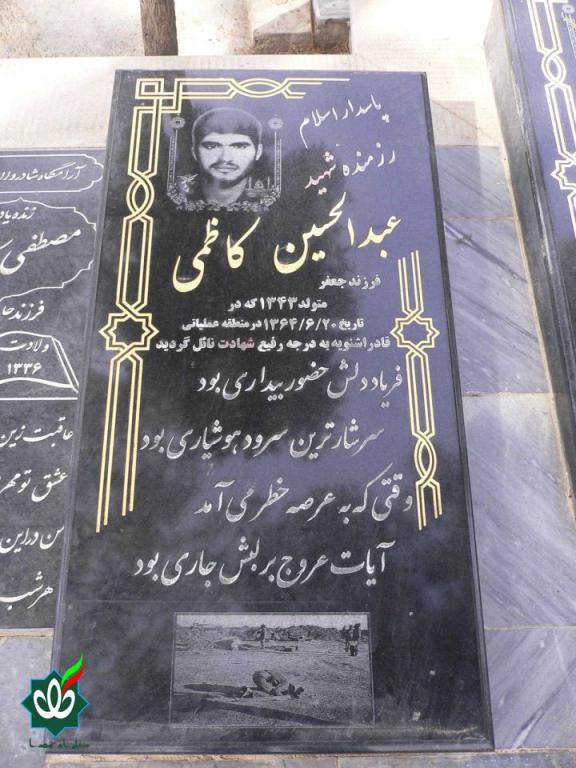 پاسدار اسلام
رزمنده شهید
عبدالحسین کاظمی
فرزند جعفر
متولد ۱۳۴۳ که در
تاریخ ۱۳۶۴/۶/۲۰ در منطقه عملیاتی
قادر اشنویه به درجه رفیع شهادت نائل گردید
فریاد دلش حضور بیداری بود
سرشارترین سرود هوشیاری بود
وقتی که به عرصه خطر می آمد
آیات عروج بر لبش جاری بود
آرامگاه شادروان
زنده یاد
مصطفی
فرزند
ولادت
۱۳۳۶
عاقبت زین
عشق تو مهر
من در این
هر شب